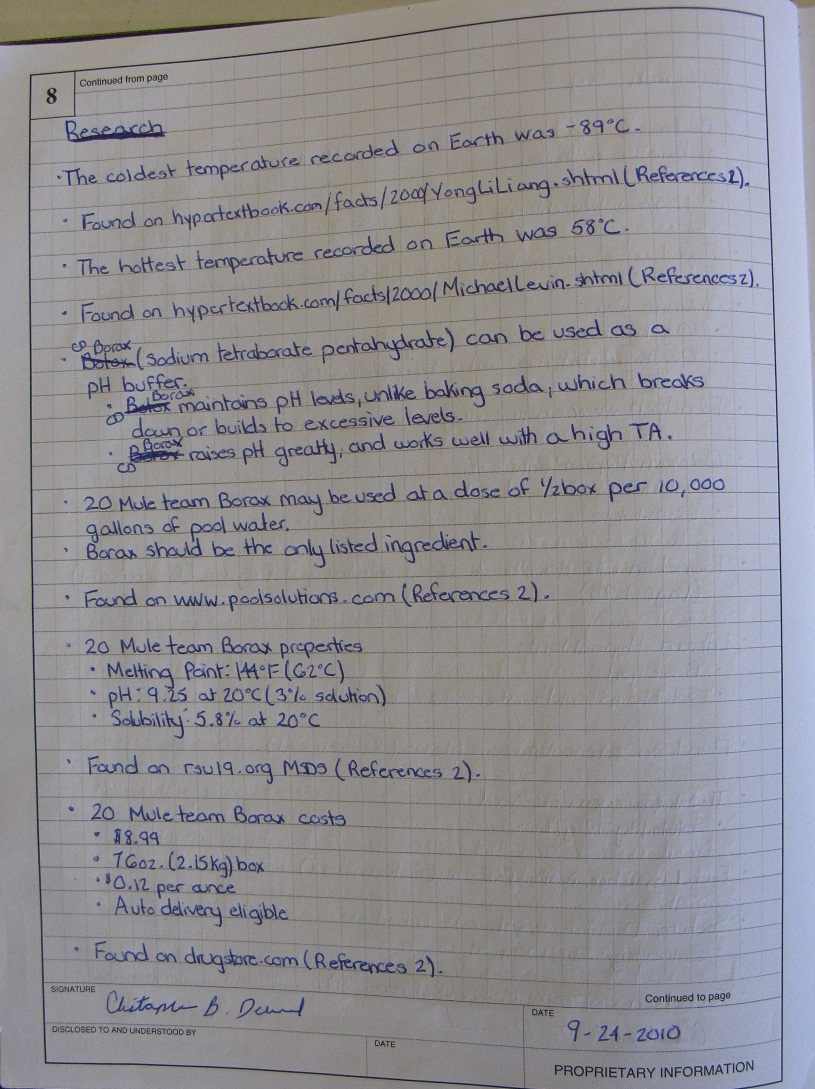 8
Continued from page
Research
· The coldest temperature recorded on Earth was -89°C.
· Found on hypertextbook.com/facts/2000/YongLiLiang.shtml (References 2).
· The hottest temperature recorded on Earth was 58°C.
· Found on hypertextbook.com/facts/2000/MichaelLevin.shtml (References 2).
CD Borax
· Botox (sodium tetraborate pentahydrate) can be used as a
pH buffer.
Borax
· CD Botox maintains pH levels, unlike baking soda, which breaks
down or builds to excessive levels.
Borax
· CD raises pH greatly, and works well with a high TA.
· 20 Mule team Borax may be used at a dose of 1/2 box per 10,000
gallons of pool water.
· Borax should be the only listed ingredient.
· Found on www.poolsolutions.com (References 2).
· 20 Mule team Borax properties
· Melting Point: 144°F (62°C)
· pH: 9.25 at 20°C (3% solution)
· Solubility: 5.8% at 20°C
· Found on rsu19.org MSDS (References 2).
· 20 Mule team Borax costs
· $8.99
· 76oz. (2.15kg) box
· $0.12 per ounce
· Auto delivery eligible
· Found on drugstore.com (References 2).
SIGNATURE
B.
Continued to page
DATE
9-24-2010
DISCLOSED TO AND UNDERSTOOD BY
DATE
PROPRIETARY INFORMATION